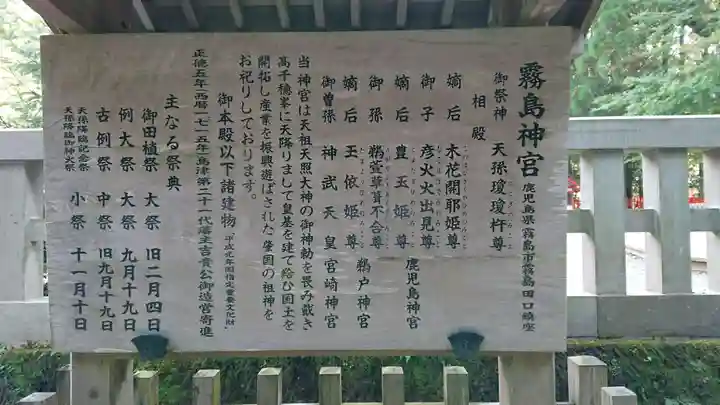 霧島神宮 鹿児島県霧島市霧島田口鎮座
御祭神 天孫瓊瓊杵尊
相殿
嫡后 木花開耶姫尊
御子 彦火火出見尊 鹿児島神宮
嫡后 豊玉姫尊
御孫 鵜萱葺不合尊 鵜戸神宮
嫡后 玉依姫尊
御曽孫 神武天皇 宮崎神宮
当神宮は天祖天照大神の御神勅を畏み戴き
高千穂峯に天降りまして皇基を建て給ひ国土を
開拓し産業を振興遊ばされた肇国の祖神を
お祀りしております。
御本殿以下諸建物 "平成元年国指定重要文化財"
正徳五年西暦一七一五年島津第二十一代藩主吉貴公御造営寄進
主なる祭典
御田植祭 大祭 旧二月四日
例大祭 大祭 九月十九日
古例祭 中祭 旧九月十九日
天孫降臨記念祭
天孫降臨御神火祭 小祭 十一月十日